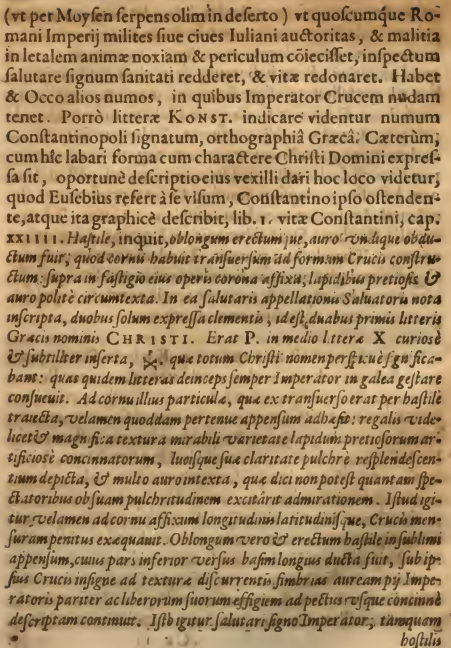 (vt per Moysen serpens olim in deserto) vt quoscumque Ro-
mani Imperij milites siue ciues Iuliani auctoritas, & malitia
in letalem animæ noxiam & periculum cōiecisset, inspectum
salutare signum sanitati redderet, & vitæ redonaret. Habet
& Occo alios numos, in quibus Imperator Crucem nudam
tenet. Porrò litteræ KONST. indicare videntur numum
Constantinopoli signatum, orthographiâ Græcâ. Cæterùm,
cum hîc labari forma cum charactere Christi Domini expres-
sa sit, oportunè descriptio eius vexilli dari hoc loco videtur,
quod Eusebius refert à se visum, Constantino ipso ostenden-
te, atque ita graphicè describit, lib. 1. vitæ Constantini, cap.
XXIIII. Hastile, inquit, oblongum erectumque, auro vndique obdu-
ctum fuit, quod cornu habuit transuersum ad formam Crucis constru-
ctum: supra in fastigio eius operis corona affixa, lapidibus pretiosis &
auro politè circumtexta. In ea salutaris appellationis Saluatoris nota
inscripta, duobus solum expressa elementis, idest, duabus primis litteris
Græcis nominis CHRISTI. Erat P. in medio litteræ X curiosè
& subtiliter inserta, quæ totum Christi nomen perspicuè significa-
bant: quas quidem litteras deinceps semper Imperator in galea gestare
consueuit. Ad cornu illius particulæ, quæ ex transuerso erat per hastile
traiecta, velamen quoddam pertenue appensum adhæsit: regalis vide-
licet & magnifica textura mirabili varietate lapidum pretiosorum ar-
tificiosè concinnatorum, luoisque suæ claritate pulchrè resplendescen-
tium depicta, & multo auro intexta, quæ dici non potest quantam spe-
ctatoribus ob suam pulchritudinem excitârit admirationem. Istud igi-
tur velamen ad cornu affixum longitudinis latitudinisque, Crucis men-
suram penitus exæquauit. Oblongum vero & erectum hastile in sublimi
appensum, cuius pars inferior versus basim longius ducta fuit, sub ip-
sius Crucis insigne ad texturæ discurrentis fimbrias auream pij Impe-
ratoris pariter ac liberorum suorum effigiem ad pectus vsque concinnè
descriptam continuit. Isto igitur salutari signo Imperator, tamquam
hostilis